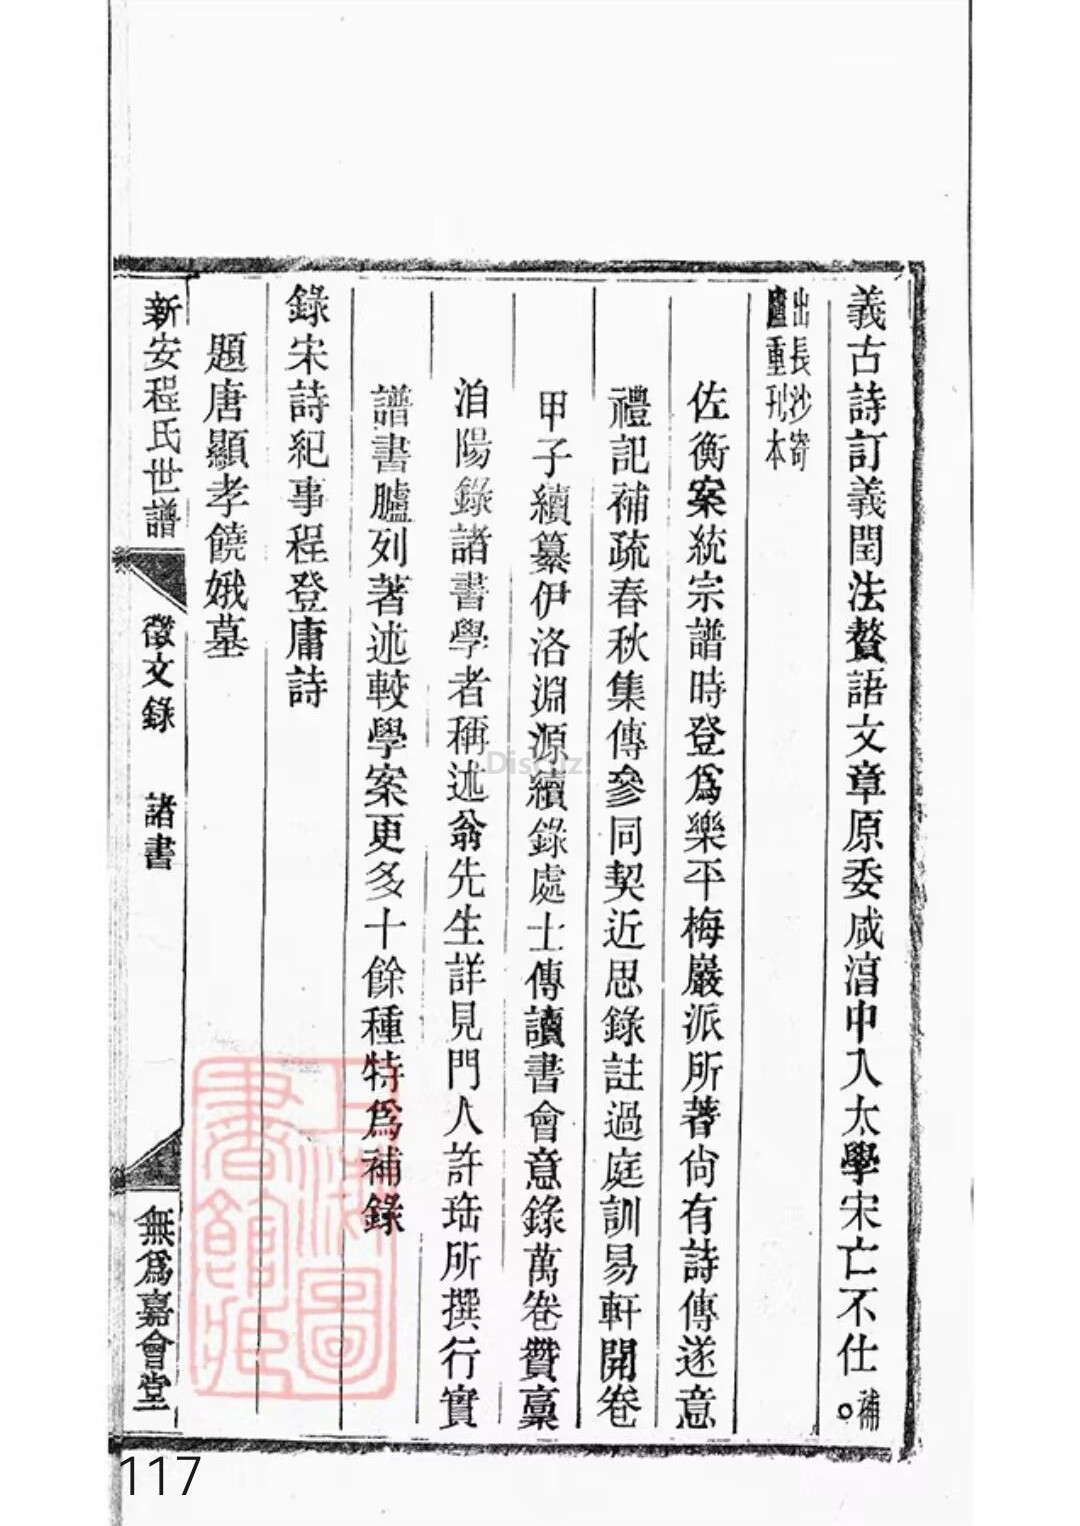 義古詩訂義閏法贅語文章原委咸淯中入太學宋亡不仕。補
出長沙寄
廬重刊本
佐衡案統宗譜時登爲樂平梅巖派所著尙有詩傳遂意
禮記補疏春秋集傳參同契近思錄註過庭訓易軒開卷
甲子續纂伊洛淵源續錄處士傳讀書會意錄萬卷贊稾
洎陽錄諸書學者稱述翁先生詳見門人許珤所撰行實
譜書臚列著述較學案更多十餘種特爲補錄
錄宋詩紀事程登庸詩
題唐顯孝饒娥墓
新安程氏世譜
徵文錄
諸書
無爲嘉會堂
上海圖
書館藏
Discuz!
117